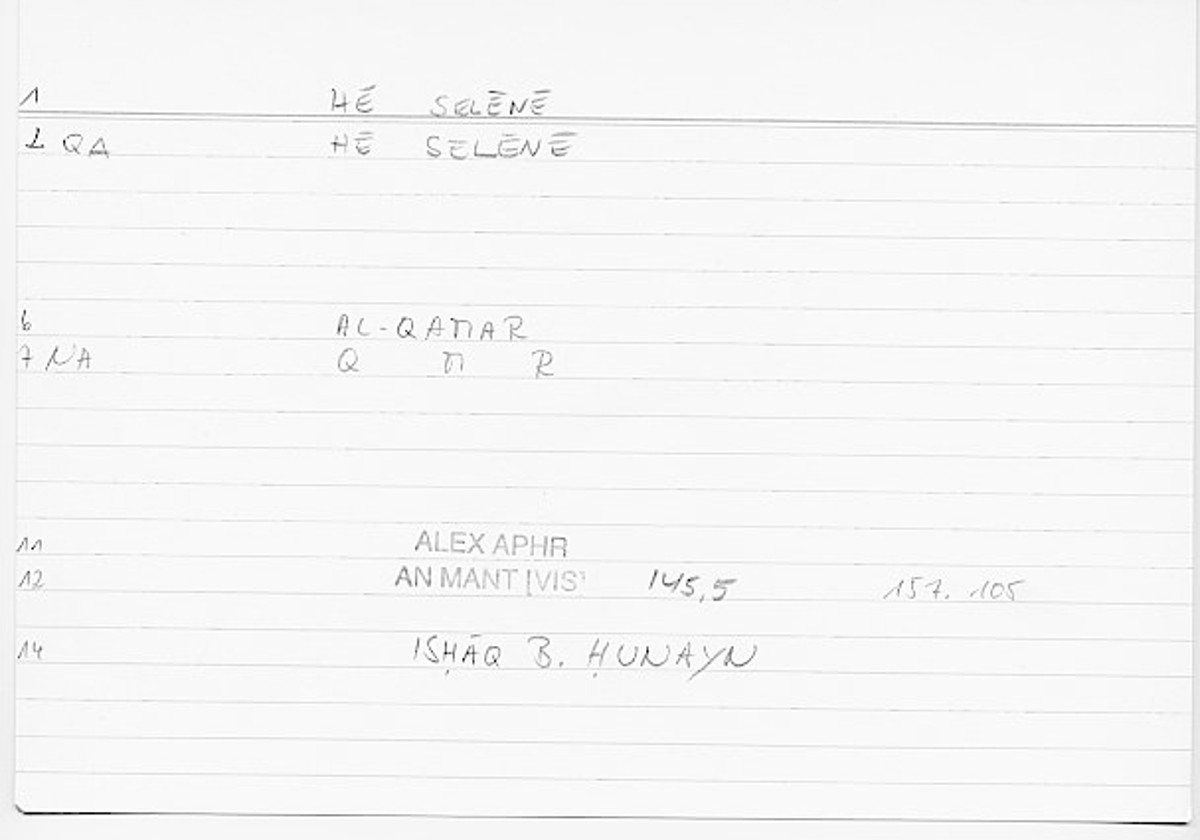 1 HĒ SELĒNĒ
2 QA HĒ SELĒNĒ
6 AL-QAMAR
7 NA Q M R
11 ALEX APHR
12 AN MANT [VIS] 145,5 157. 105
14 ISḤĀQ B. ḤUNAYN